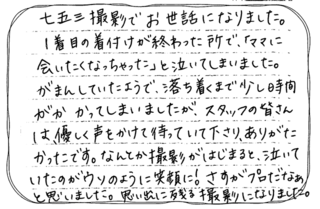 七五三撮影でお世話になりました。
1着目の着付けが終わった所で、「ママに
会いたくなっちゃった」と泣いてしまいました。
がまんしていたようで、落ち着くまで少し時間
がかかってしまいましたが、スタッフの皆さん
は優しく声をかけて待っていて下さり、ありがた
かったです。なんとか撮影がはじまると、泣いて
いたのがウソのように笑顔に! さすがプロだなぁ
と思いました。思い出に残る撮影になりました。